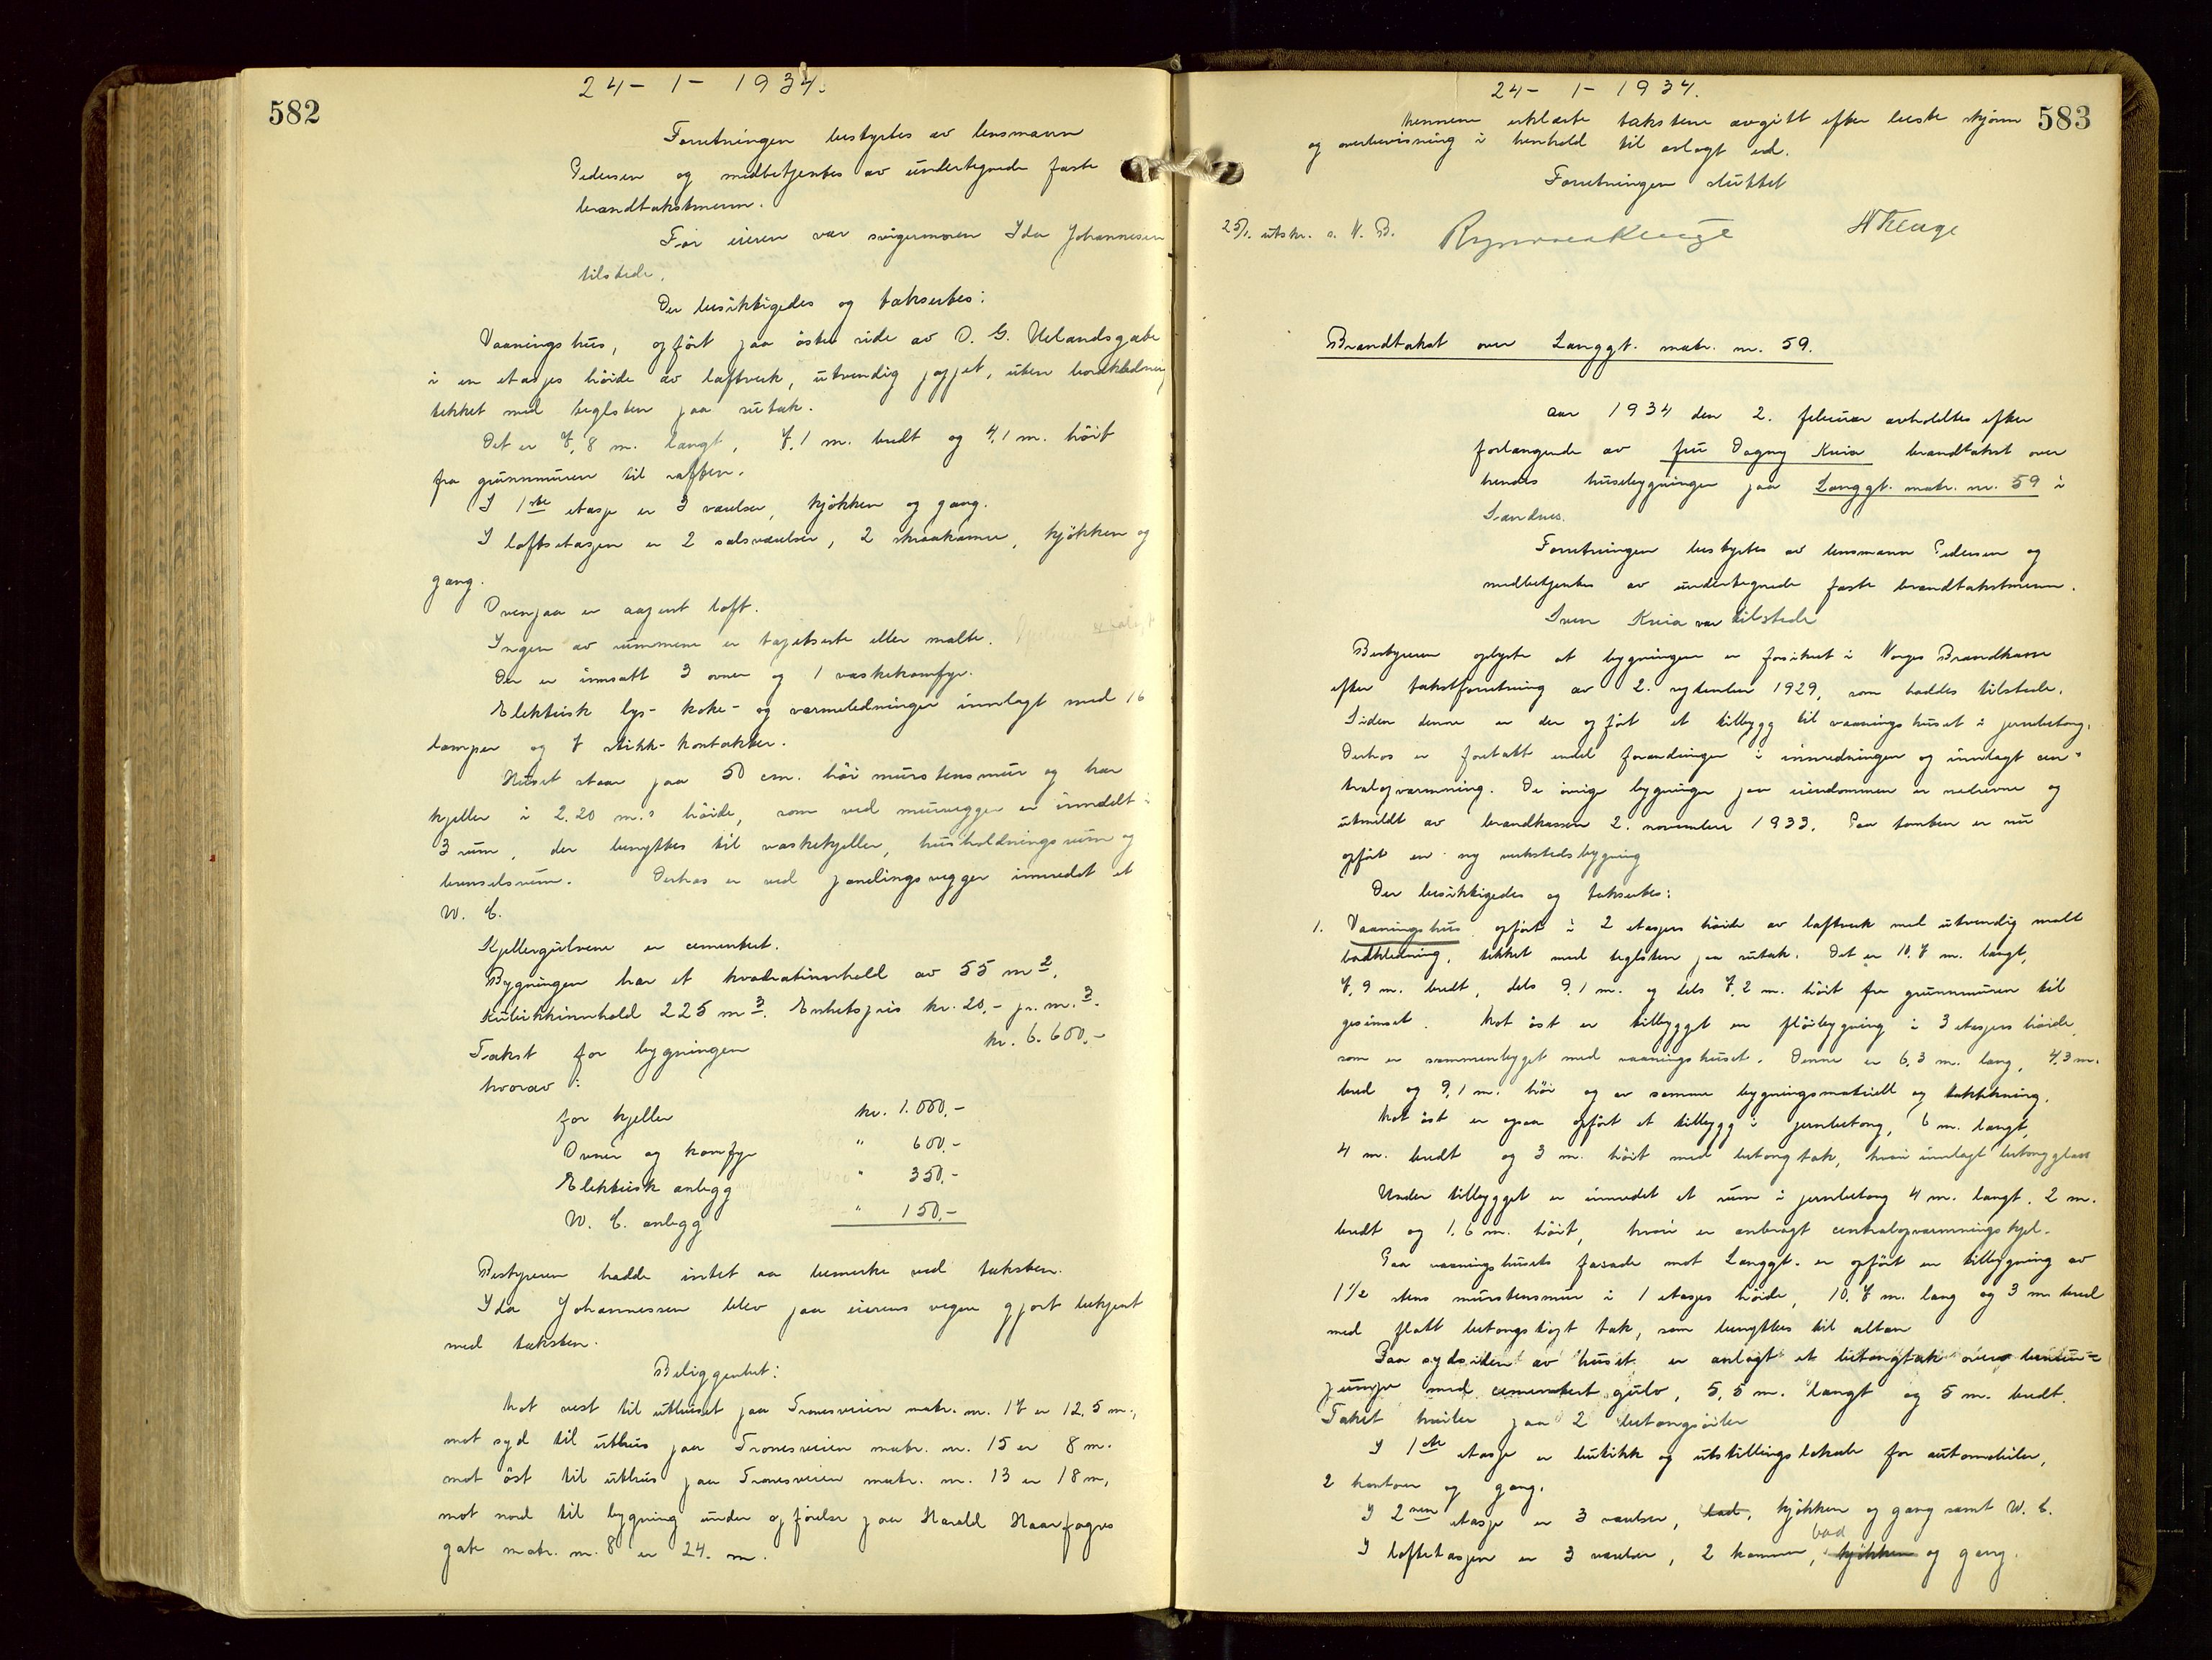 582
24 - 1 - 1934.
Forretningen bestyrtes av lensmann
Pedersen og medbetjentes av undertegnede faste
brandtakstmenn.
For eieren var svigermoren Ida Johannesen
tilstede.
Der besiktigedes og takseertes:
Vaaningshus, opført paa østre side av O. G. Uelandsgate
i en etasjes høide av laftverk, utvendig pappet, uten bordklædning
tekket med teglsten paa sutak.
Det er 7,8 m. langt, 7,1 m. bredt og 4,1 m. høit
fra grunnmuren til raften.
I 1ste etasje er 3 værelser, kjøkken og gang.
I loftsetasjen er 2 salsværelser, 2 skraakamre, kjøkken og
gang.
Ovenpaa er aapent loft.
Ingen av rummene er tapetserte eller malte.
Der er innsatt 3 ovner og 1 vaskekomfyr.
Elektrisk lys- koke- og varmeledninger innlagt med 16
lamper og 7 stikk-kontakter.
Huset staar paa 50 cm. høi murstensmur og har
kjeller i 2.20 m.s høide, som ved murvegger er inndelt i
3 rum, der benyttes til vaskekjeller, husholdningsrum og
brenselsrum. Derhos er ved panelingsvegger innredet et
W. C.
Kjellergulvene er cementert.
Bygningen har et kvadratinnhold av 55 m2.
Kubikkinnhold 225 m3. Enhetspris kr. 20,- pr. m.3.
Takst for bygningen kr. 6.600,-
hvorav:
for kjeller kr. 1.000,-
Ovner og komfyr " 600,-
Elektrisk anlegg " 350,-
W. C. anlegg " 150,-
Bestyreren hadde intet aa bemerke ved taksten.
Ida Johannessen blev paa eierens vegne gjort bekjent
med taksten.
Beliggenhet:
Mot vest til uthuset paa Tronesveien matr. nr. 17 er 12,5 m.,
mot syd til uthus paa Tronesveien matr. nr. 15 er 8 m.
mot øst til uthus paa Tronesveien matr. nr. 13 er 18 m,
mot nord til bygning under opførelse paa Harald Haarfagres
gate matr. nr. 8 er 24. m.
24 - 1 - 1934.
583
Mennene erklærte takstene avgitt efter beste skjønn
og overbevisning i henhold til avlagt ed.
Forretningen sluttet
25/1. utskr. s. N. B.
Brandtakst over Langgt. matr. nr. 59.
Aar 1934 den 2. februar avholdtes efter
forlangende av fru Dagny Kvia brandtakst over
hendes husebygninger paa Langgt. matr. nr. 59 i
Sandnes.
Forretningen bestyrtes av lensmann Pedersen og
medbetjentes av undertegnede faste brandtakstmenn.
Sven Kvia var tilstede
Bestyreren oplyste at bygningen er forsikret i Norges Brandkasse
efter takstforretning av 2. september 1929, som haddes tilstede.
Siden denne er der opført et tilbygg til vaaningshuset i jernbetong.
Derhos er foretatt endel forandringer i innredningen og innlagt cen-
tralopvarmning. De øvrige bygninger paa eiendommen er nedrevne og
utmeldt av brandkassen 2. november 1933. Paa tomten er nu
opført en ny verkstedsbygning
Der besiktigedes og takseertes:
1. Vaaningshus, opført i 2 etasjers høide av laftverk med utvendig malt
bordkledning, tekket med teglsten paa sutak. Det er 10.7 m. langt,
7,9 m. bredt, dels 9,1 m. og dels 7,2 m. høit fra grunnmuren til
gesimset. Mot øst er tilbygget en fløibygning i 3 etasjers høide,
som er sammenbygget med vaaningshuset. Denne er 6,3 m. lang, 4,3 m.
bred og 9,1 m. høi og av samme bygningsmateriell og taktekning.
Mot øst er ogsaa opført et tilbygg i jernbetong, 6 m. langt,
4 m. bredt og 3 m. høit med betongtak, hvori innlagt betongglass
Under tilbygget er innredet et rum i jernbetong 4 m. langt. 2 m.
bredt og 1.6 m. høit, hvori er anbragt centralopvarmningskjel.
Paa vaaningshusets fasade mot Langgt. er opført en tilbygning av
1 1/2 stens murstensmur i 1 etasjes høide, 10.7 m. lang og 3 m. bred
med flatt betongstøpt tak, som benyttes til altan
Paa sydsiden av huset er anlagt et betongtak over bensin-
pumpe med cementert gulv, 5,5 m. langt og 5 m. bredt.
Taket hviler paa 2 betongsøiler
I 1ste etasje er butikk og utstillingslokale for automobiler,
2 kontorer og gang.
I 2nen etasje er 3 værelser, bad, kjøkken og gang samt W. C.
I loftetasjen er 3 værelser, 2 kammer, kjøkken bad og gang.